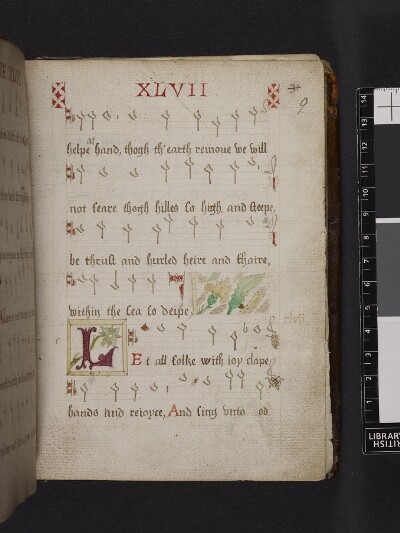 XLVII
9
at
helpe hand, thogh th'earth remoue we will
not feare thogh hilles so high and steepe,
be thrust and hurled heire and thaire,
within the sea so deipe,
xlvii
LEt all folke with ioy clape
hands and reioyce, And sing vnto od
LIBRARY
BRITISH